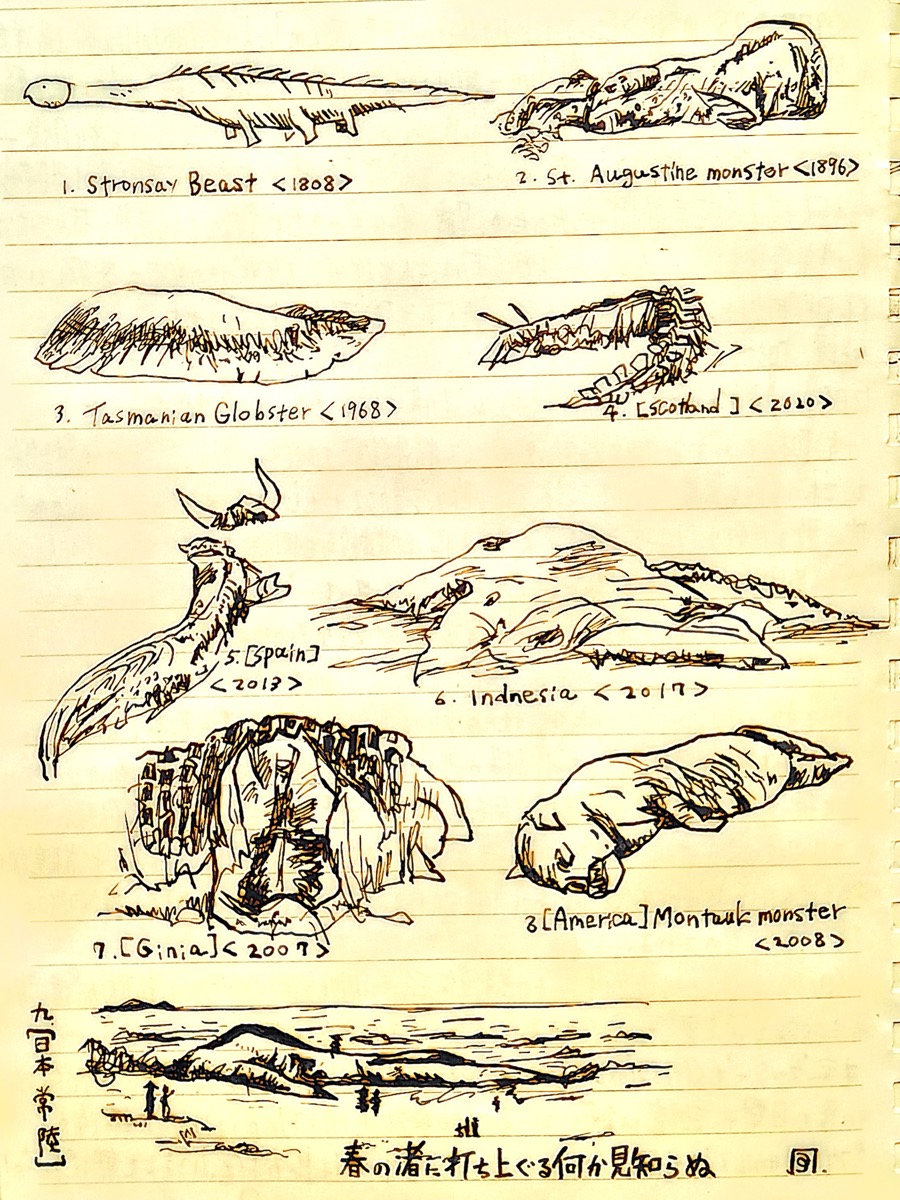 1. Stronsay Beast <1808>
2. St. Augustine monster <1896>
3. Tasmanian Globster <1968>
4. [Scotland] <2020>
5. [Spain]
<2013>
6. Indnesia <2017>
7. [Ginia] <2007>
8 [America] Montauk monster
<2008>
九.[日本 常陸]
春の渚に打ち上ぐる何か見知らぬ